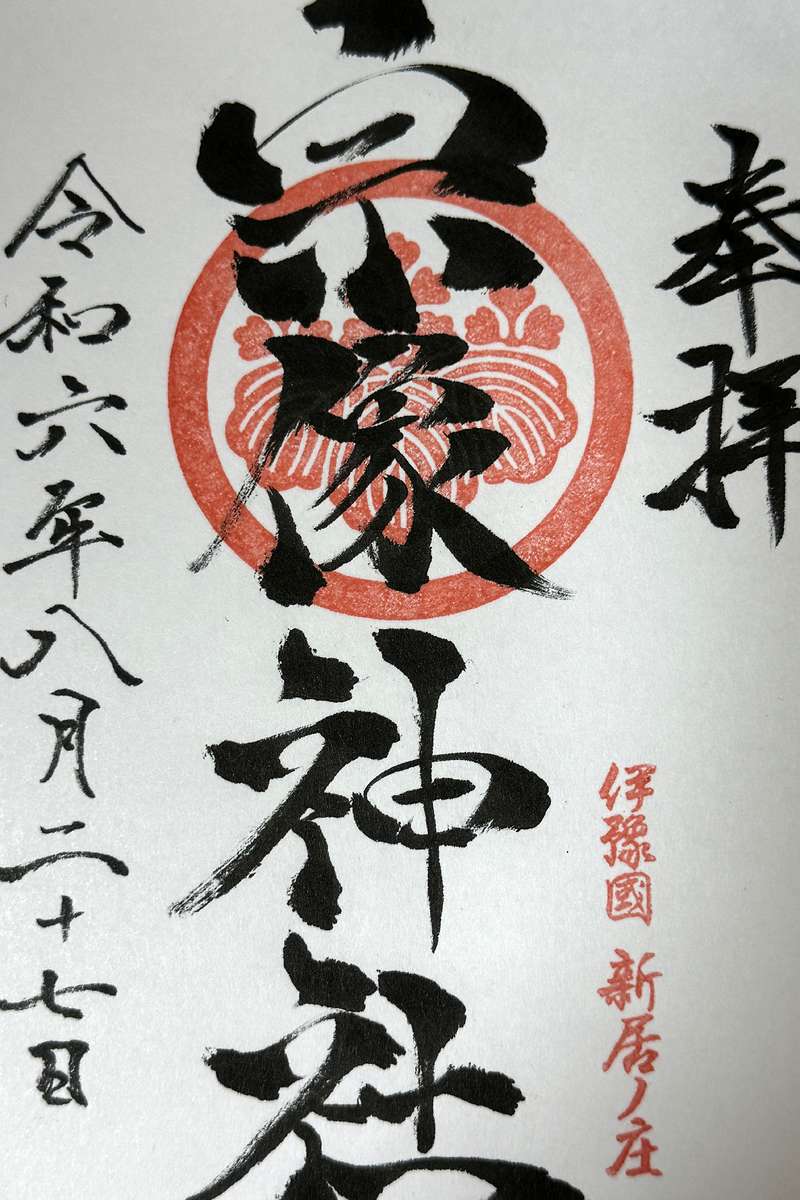 奉拝
伊豫國 新居ノ庄
宗像神社
令和六年八月二十七日